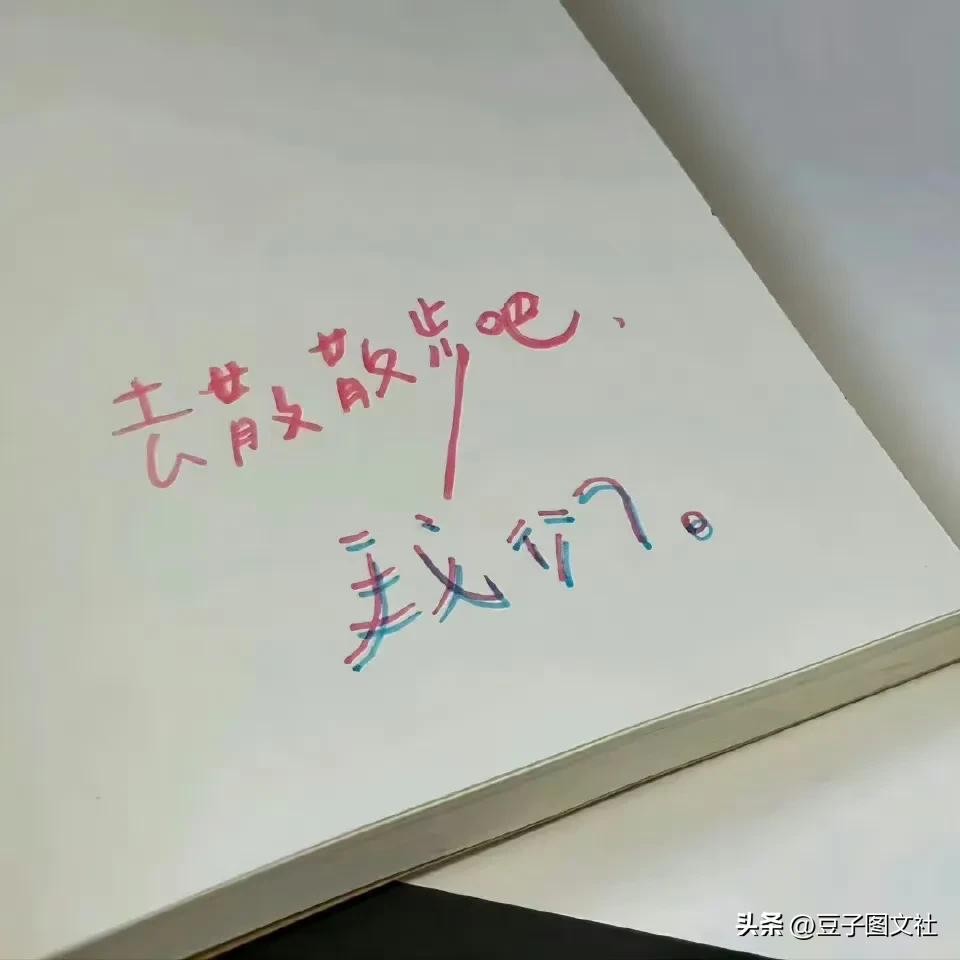 去散散步吧、
我们。
头条 @豆子图文社